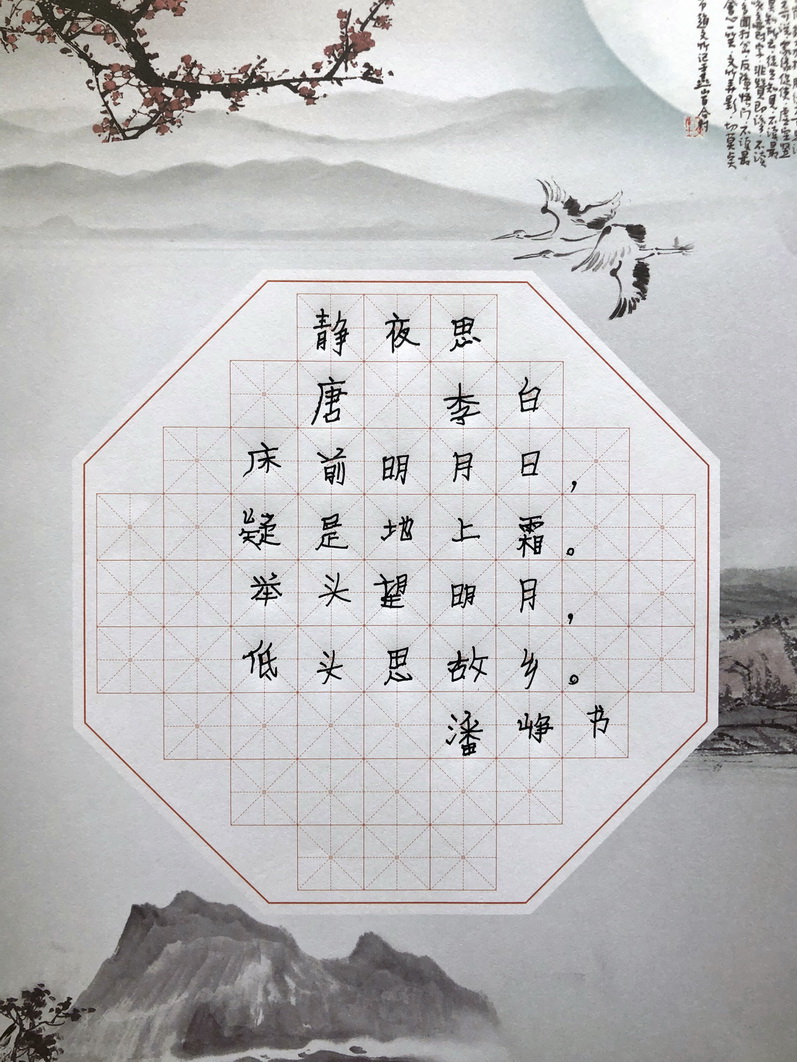 静夜思
唐 李白
床前明月日，
疑是地上霜。
举头望明月，
低头思故乡。
潘峥书